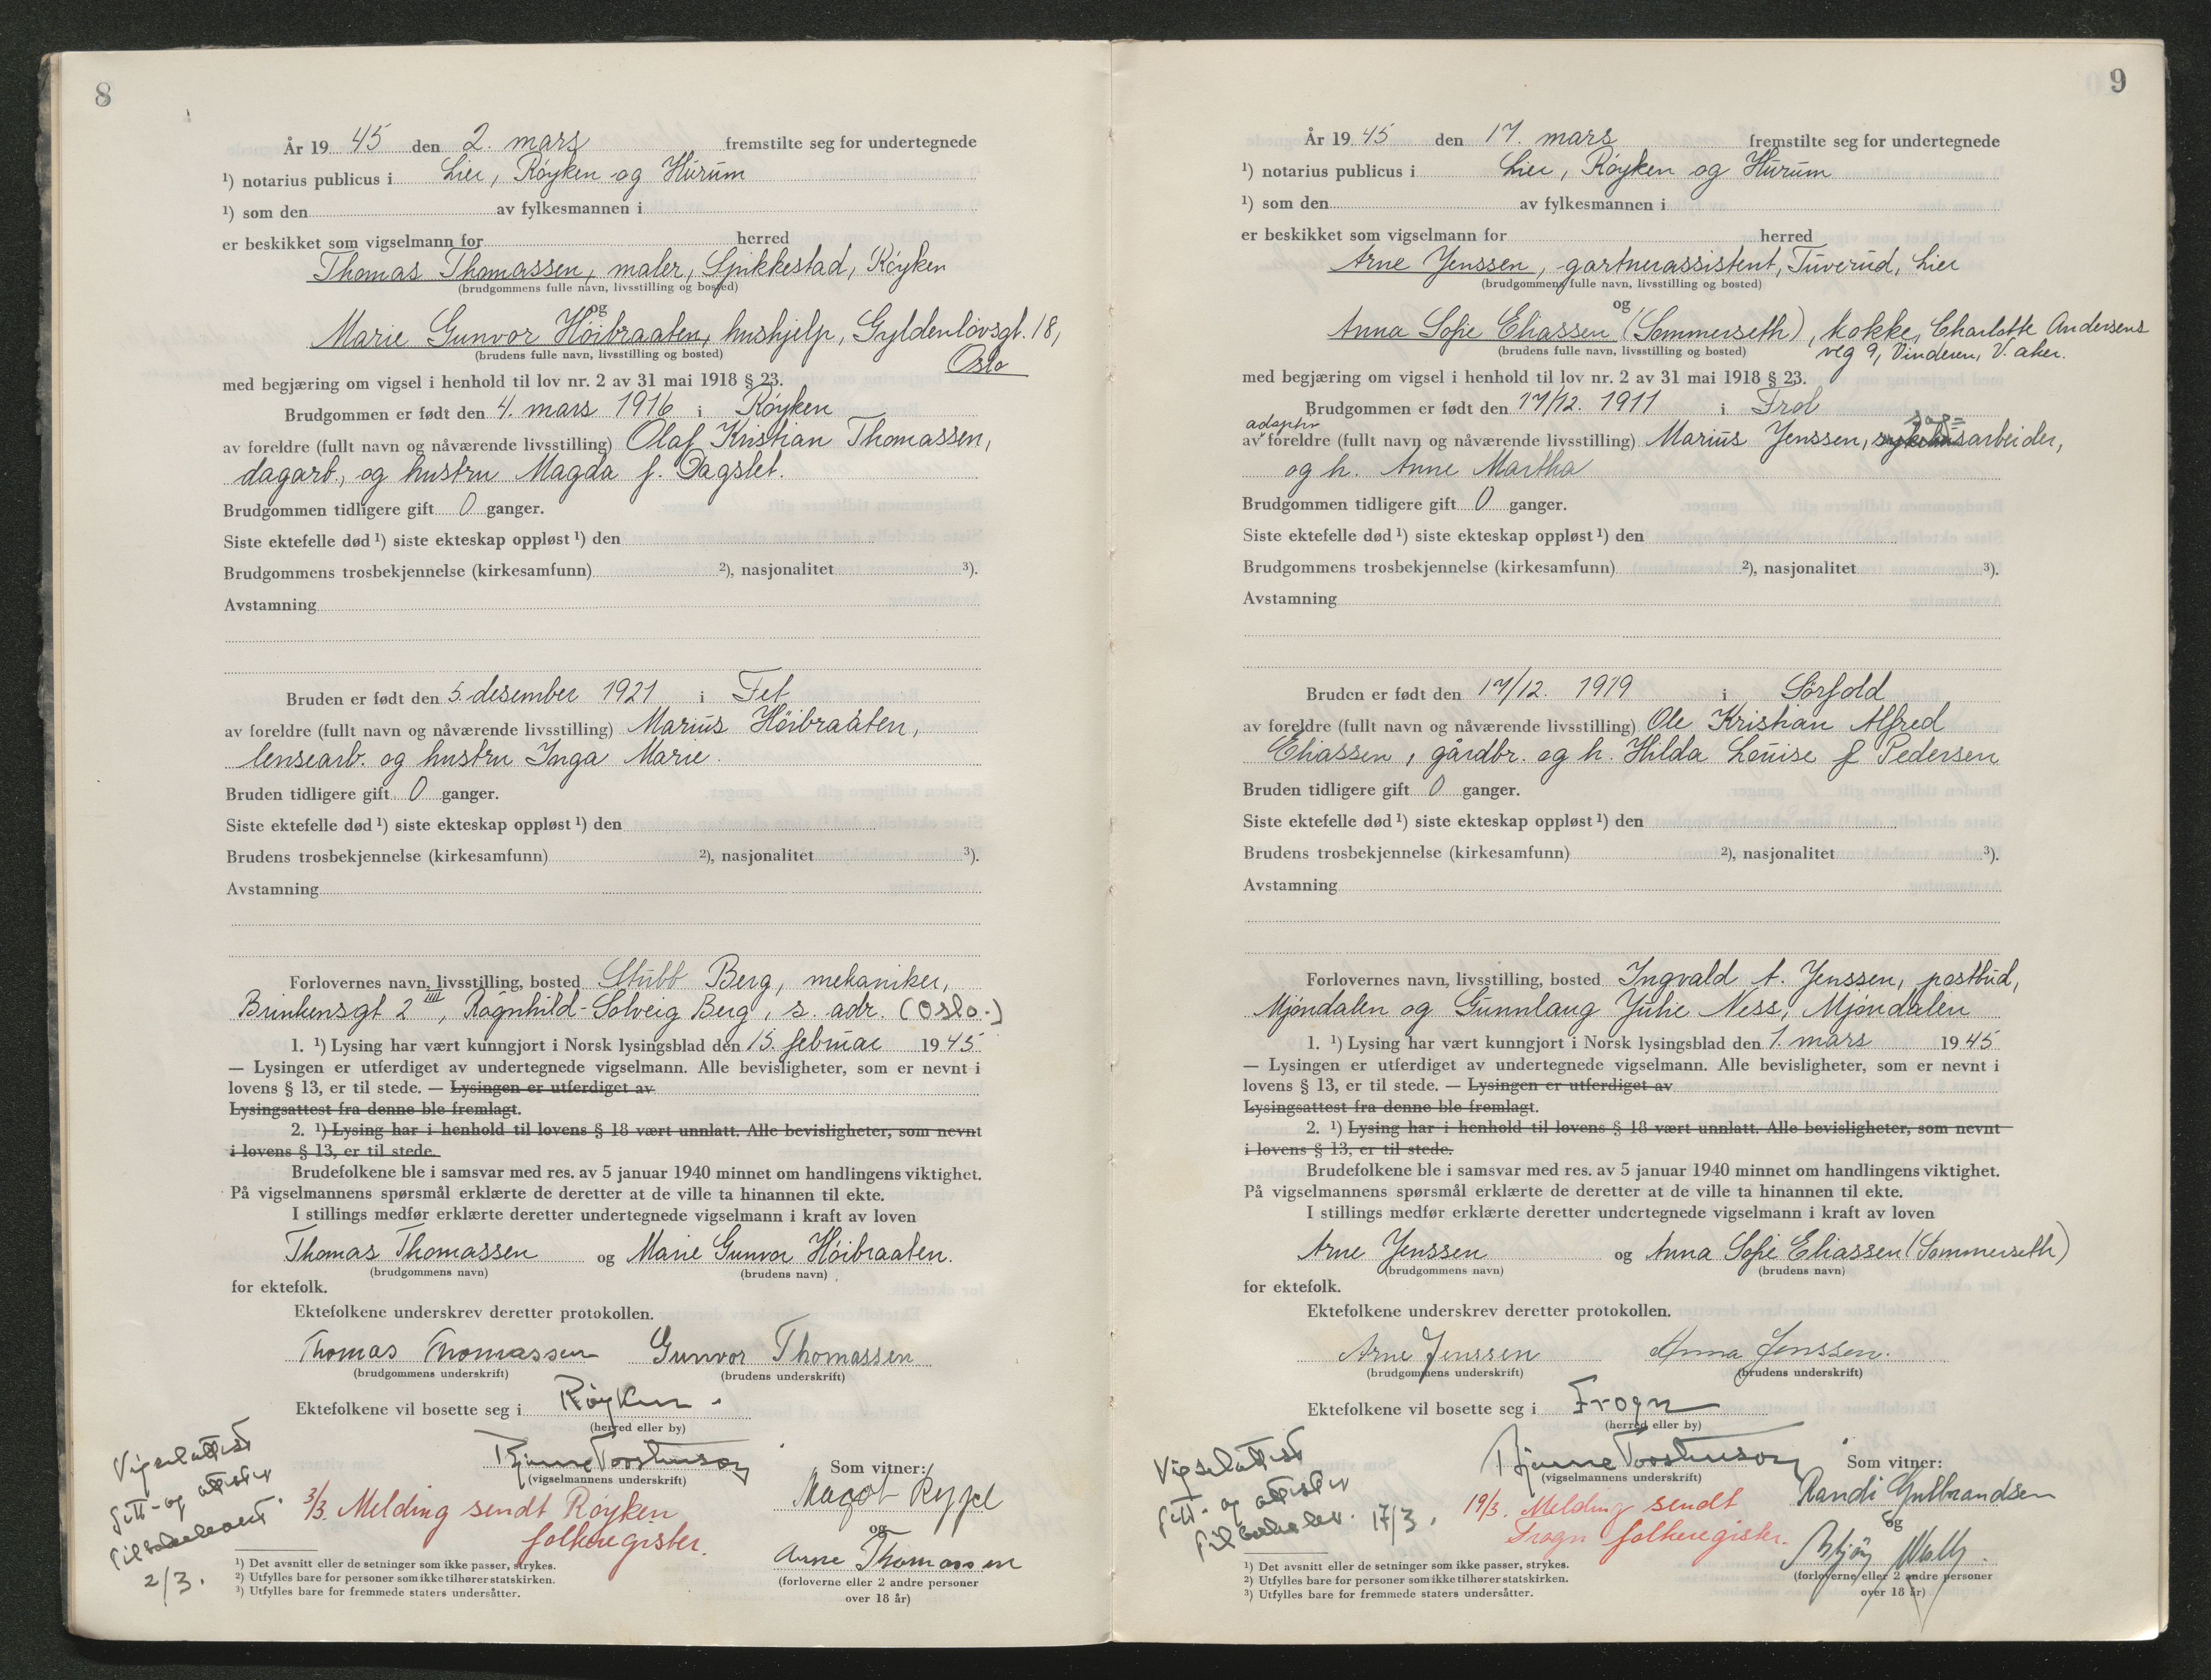 8
År 19 45 den 2. mars fremstilte seg for undertegnede
¹) notarius publicus i Lier, Røyken og Hurum
¹) som den av fylkesmannen i
er beskikket som vigselmann for herred
Thomas Thomassen, maler, Spikkestad, Røyken
(brudgommens fulle navn, livsstilling og bosted)
og
Marie Gunvor Höibraaten, hushjelp, Gyldenløvsgt. 18,
(brudens fulle navn, livsstilling og bosted)
Oslo
med begjæring om vigsel i henhold til lov nr. 2 av 31 mai 1918 § 23.
Brudgommen er født den 4. mars 1916 i Røyken
av foreldre (fullt navn og nåværende livsstilling) Olaf Kristian Thomassen,
dagarb., og hustru Magda f. Dagslet.
Brudgommen tidligere gift 0 ganger.
Siste ektefelle død ¹) siste ekteskap oppløst ¹) den
Brudgommens trosbekjennelse (kirkesamfunn) ²), nasjonalitet ³).
Avstamning
Bruden er født den 5. desember 1921 i Fet
av foreldre (fullt navn og nåværende livsstilling) Marius Höibraaten,
lensearb. og hustru Inga Marie.
Bruden tidligere gift 0 ganger.
Siste ektefelle død ¹) siste ekteskap oppløst ¹) den
Brudens trosbekjennelse (kirkesamfunn) ²), nasjonalitet ³).
Avstamning
Forlovernes navn, livsstilling, bosted Stubb Berg, mekaniker,
Brinkensgt 2 IIII, Ragnhild-Solveig Berg, s. adr. (Oslo.)
1. ¹) Lysing har vært kunngjort i Norsk lysingsblad den 15. februar 19 45
— Lysingen er utferdiget av undertegnede vigselmann. Alle bevisligheter, som er nevnt i
lovens § 13, er til stede. — Lysingen er utferdiget av
Lysingsattest fra denne ble fremlagt.
2. ¹) Lysing har i henhold til lovens § 18 vært unnlatt. Alle bevisligheter, som nevnt
i lovens § 13, er til stede.
Brudefolkene ble i samsvar med res. av 5 januar 1940 minnet om handlingens viktighet.
På vigselmannens spørsmål erklærte de deretter at de ville ta hinannen til ekte.
I stillings medfør erklærte deretter undertegnede vigselmann i kraft av loven
Thomas Thomassen og Marie Gunvor Höibraaten.
(brudgommens navn) (brudens navn)
for ektefolk.
Ektefolkene underskrev deretter protokollen.
Thomas Thomassen Gunvor Thomassen
(brudgommens underskrift) (brudens underskrift)
Ektefolkene vil bosette seg i Røyken.
(herred eller by)
Bjarne Torstenson
(vigselmannens underskrift)
Som vitner:
Vigselattest
fitt- og attester
tilbakelevert.
2/3.
3/3. Melding sendt Røyken
folkeregister.
Magot
og
Anne Thomassen
(forloverne eller 2 andre personer
over 18 år)
¹) Det avsnitt eller de setninger som ikke passer, strykes.
²) Utfylles bare for personer som ikke tilhører statskirken.
³) Utfylles bare for fremmede staters undersåtter.
9
År 19 45 den 17. mars fremstilte seg for undertegnede
¹) notarius publicus i Lier, Røyken og Hurum
¹) som den av fylkesmannen i
er beskikket som vigselmann for herred
Arne Jenssen, gartnerassistent, Tuverud, Lier
(brudgommens fulle navn, livsstilling og bosted)
og
Anna Sofie Eliassen (Sommerseth), kokke, Charlotte Andersens
(brudens fulle navn, livsstilling og bosted) veg 9, Vinderen, V. aker.
med begjæring om vigsel i henhold til lov nr. 2 av 31 mai 1918 § 23.
Brudgommen er født den 17/12. 1911 i Frol
adoptiv sag=
av foreldre (fullt navn og nåværende livsstilling) Marius Jenssen, arbeider,
og h. Anne Martha
Brudgommen tidligere gift 0 ganger.
Siste ektefelle død ¹) siste ekteskap oppløst ¹) den
Brudgommens trosbekjennelse (kirkesamfunn) ²), nasjonalitet ³).
Avstamning
Bruden er født den 17/12. 1919 i Sørfold
av foreldre (fullt navn og nåværende livsstilling) Ole Kristian Alfred
Eliassen, gårdbr. og h. Hilda Louise f Pedersen
Bruden tidligere gift 0 ganger.
Siste ektefelle død ¹) siste ekteskap oppløst ¹) den
Brudens trosbekjennelse (kirkesamfunn) ²), nasjonalitet ³).
Avstamning
Forlovernes navn, livsstilling, bosted Ingvald A. Jenssen, postbud,
Mjøndalen og Gunnlaug Julie Ness, Mjøndalen
1. ¹) Lysing har vært kunngjort i Norsk lysingsblad den 1. mars 19 45
— Lysingen er utferdiget av undertegnede vigselmann. Alle bevisligheter, som er nevnt i
lovens § 13, er til stede. — Lysingen er utferdiget av
Lysingsattest fra denne ble fremlagt.
2. ¹) Lysing har i henhold til lovens § 18 vært unnlatt. Alle bevisligheter, som nevnt
i lovens § 13, er til stede.
Brudefolkene ble i samsvar med res. av 5 januar 1940 minnet om handlingens viktighet.
På vigselmannens spørsmål erklærte de deretter at de ville ta hinannen til ekte.
I stillings medfør erklærte deretter undertegnede vigselmann i kraft av loven
Arne Jenssen og Anna Sofie Eliassen (Sommerseth)
(brudgommens navn) (brudens navn)
for ektefolk.
Ektefolkene underskrev deretter protokollen.
Arne Jenssen Anna Jenssen.
(brudgommens underskrift) (brudens underskrift)
Ektefolkene vil bosette seg i Frogn
(herred eller by)
Bjarne Torstenson
(vigselmannens underskrift)
Som vitner:
Vigselattest
fitt- og attester
tilbakelev. 17/3.
19/3. Melding sendt
Frogn folkeregister.
Randi Gulbrandsen
og
(forloverne eller 2 andre personer
over 18 år)
¹) Det avsnitt eller de setninger som ikke passer, strykes.
²) Utfylles bare for personer som ikke tilhører statskirken.
³) Utfylles bare for fremmede staters undersåtter.